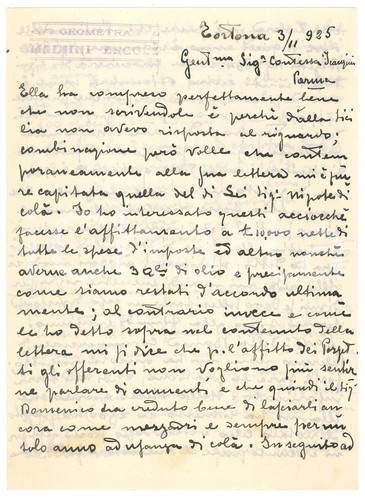 GEOMETRA
Tortona 3/11 925
Gent.ma Sig.a Contessa
Parma
Ella ha compreso perfettamente bene
che non scrivendole è perchè dalla Sici
lia non avevo risposta al riguardo;
combinazione però volle che contem
poraneamente alla Sua lettera mi è pu
re capitata quella del di Lei Sig. nipote di
colà. Io ho interessato questi acciocchè
facesse l'affittamento a £ 10000 nette di
tutte le spese d'imposte ed altro nonchè
averne anche 3 Q.li di olio e precisamente
come siamo restati d'accordo ultima
mente; al contrario invece e come
le ho detto sopra nel contenuto della
lettera mi si dice che p. l'affitto dei
ti gli offerenti non vogliono più sentir
ne parlare di aumenti e che quindi il Sig.
Domenico ha creduto bene di lasciarli an
cora come mezzadri e sempre per un
solo anno ad usanza di colà. In seguito ad